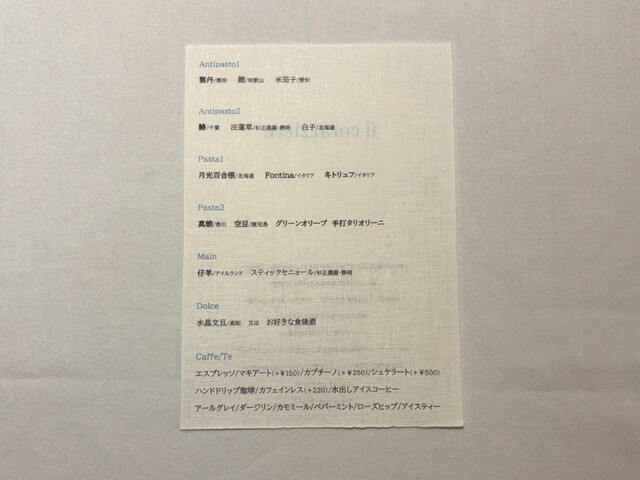 Antipasto1
雲丹/
鰹/和歌山 米茄子/愛知
Antipasto2
鰆/千葉 法蓮草/杉正農園・静岡 白子/北海道
Pasta1
月光百合根/北海道 Fontina/イタリア 冬トリュフ/イタリア
Pasta2
真蛸/香川 空豆/鹿児島 グリーンオリーブ 手打タリオリーニ
Main
仔羊/アイルランド スティックセニョール/杉正農園・静岡
Dolce
水晶文旦/高知 又は お好きな食後酒
Caffe/Te
エスプレッソ/マキアート(+¥150)/カプチーノ(+¥250)/シェケラート(+¥500)
ハンドドリップ珈琲/カフェインレス(+220)/水出しアイスコーヒー
アールグレイ/ダージリン/カモミール/ペパーミント/ローズヒップ/アイスティー